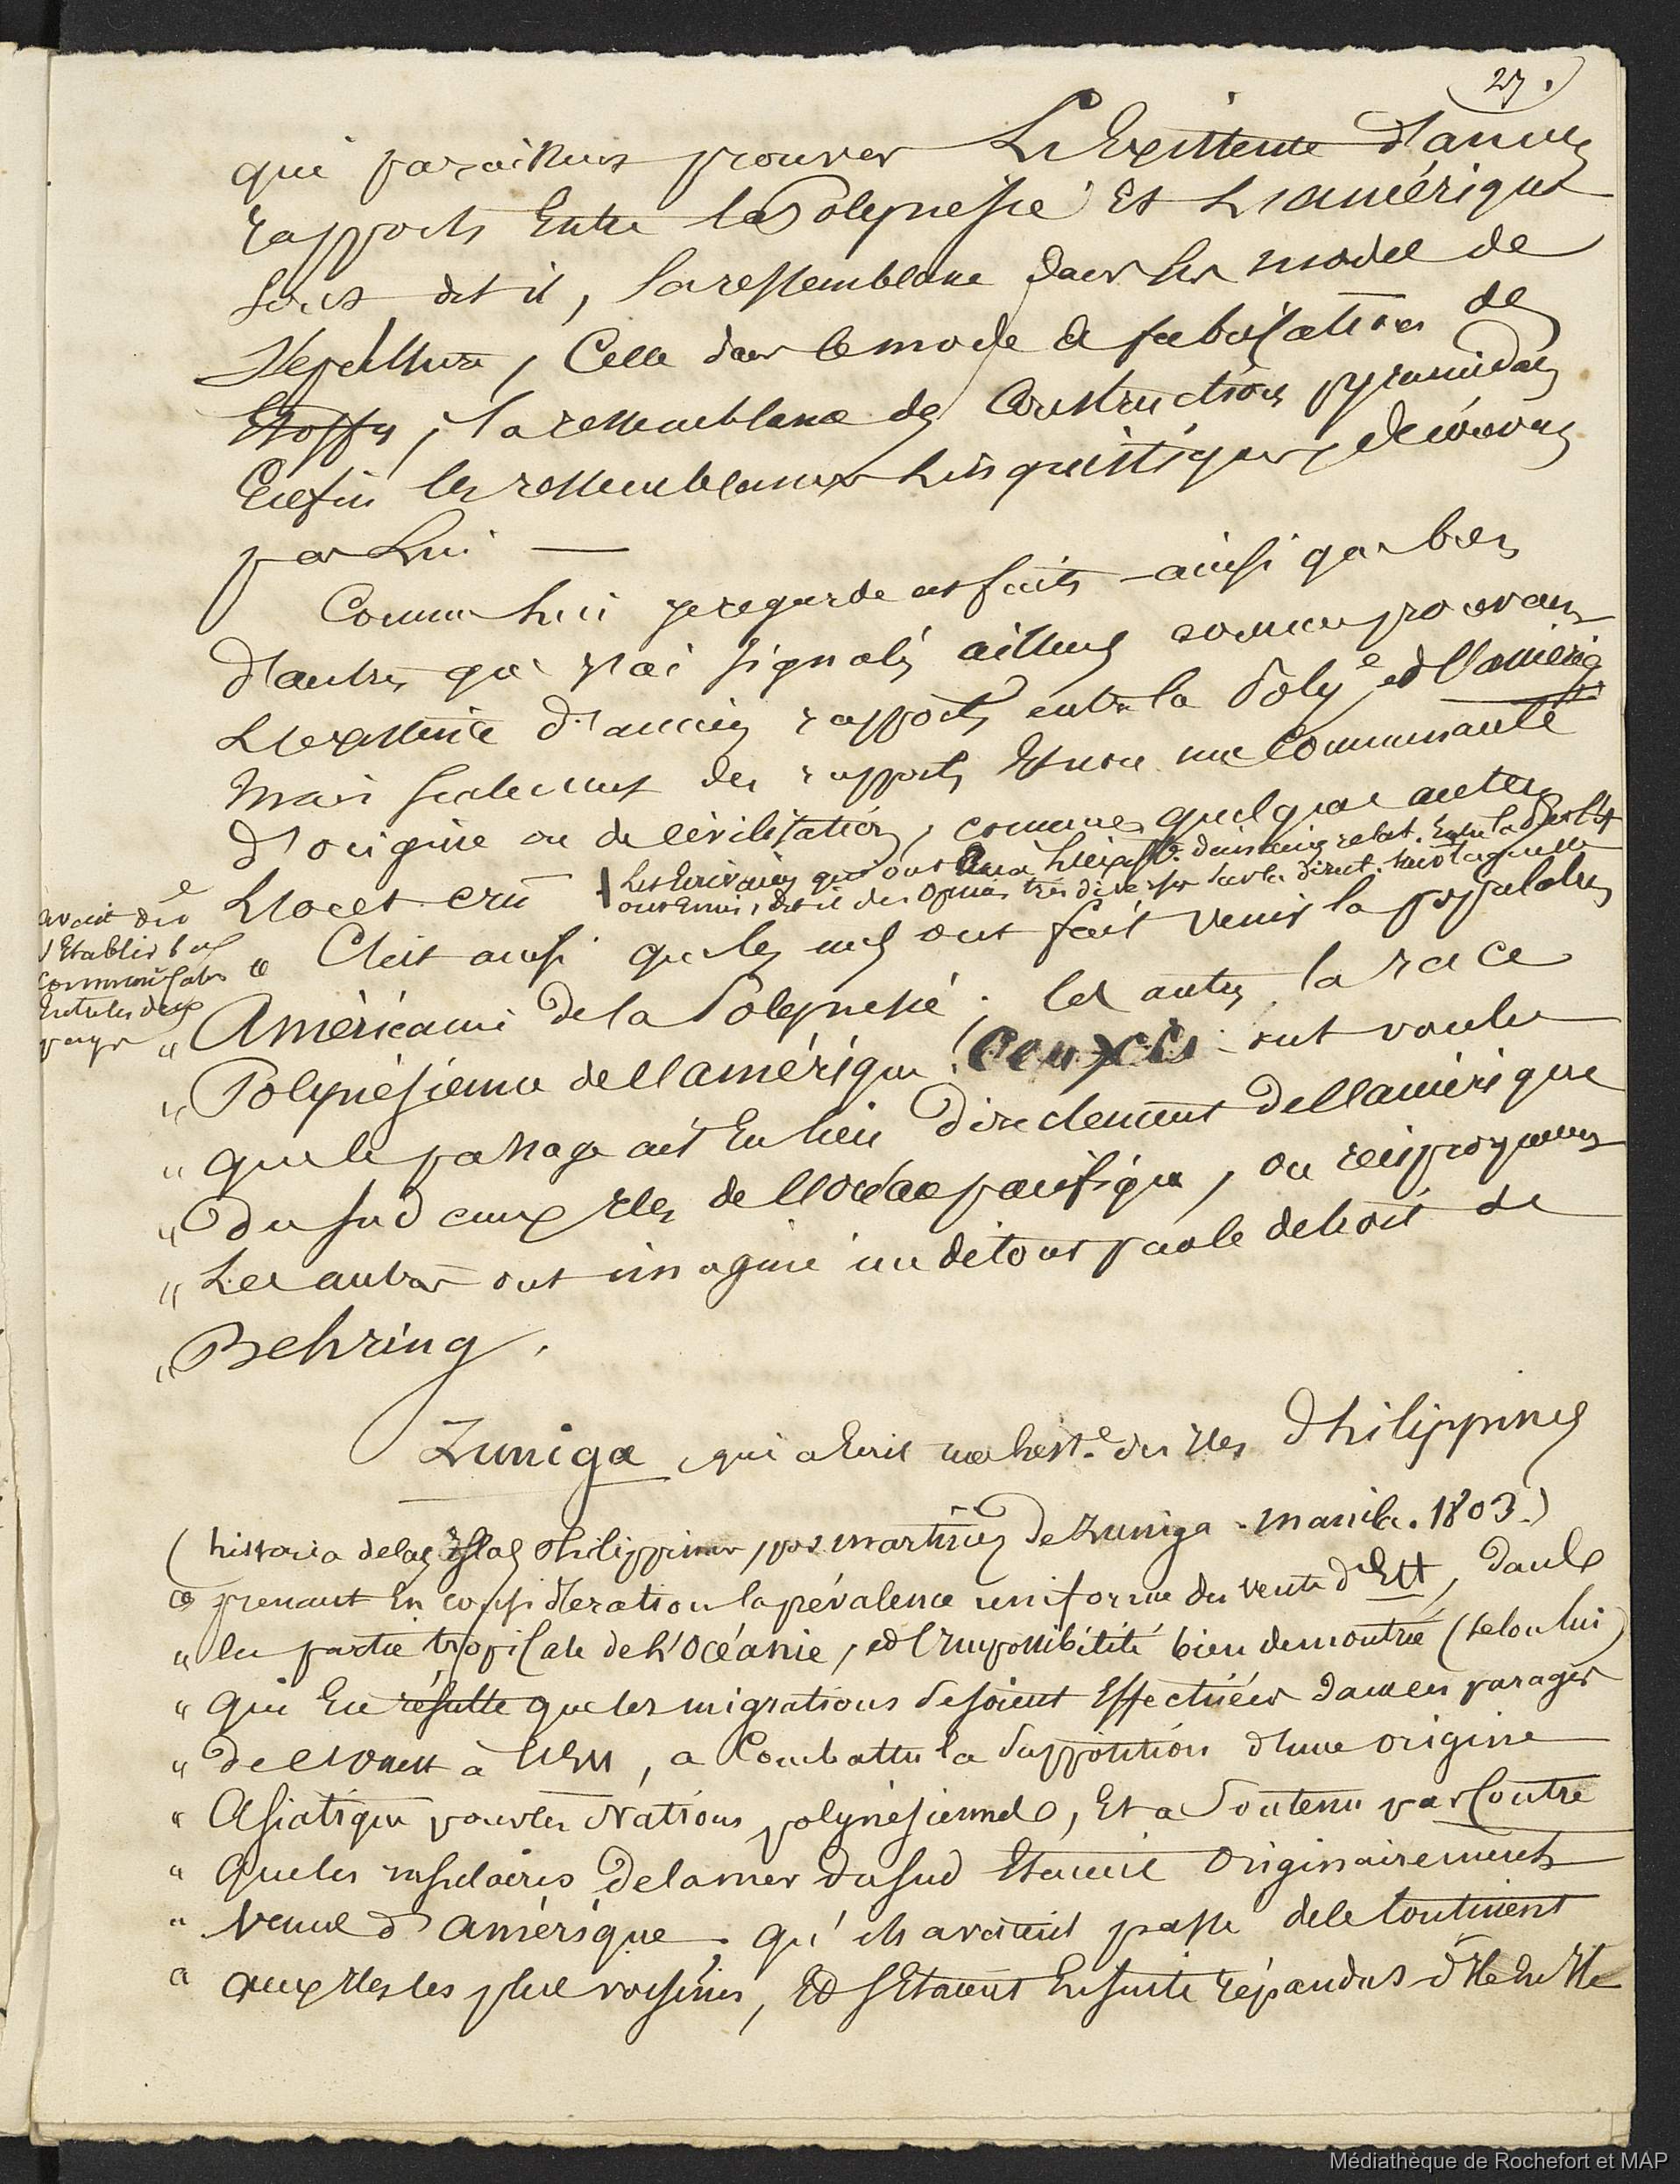 27.
qui paraissent prouver L'Existence d'anciens
rapports Entre la Polynésie Et L'amérique
sont dit il, la ressemblance dans les modes de
Sepulture, Celle dans le mode de fabrication des
Etoffes, la ressemblance des Constructions pyramidales
Enfin les ressemblances Linguistiques découvertes
par Lui —
Comme lui je regarde ces faits ainsi que bien
d'autres que j'ai signalés ailleurs comme prouvant
L'existence d'anciens rapports entre la Polye et l'amériq
mais seulement des rapports Et non une Communauté
d'origine ou de civilisation, comme quelques autres
L'ont cru
Les Ecrivains qui ont relat. Entre la
ont Emis, dit il des opinions très diverses sur la direct. suivt laquelle
avait dû
s'Etablir les
communicatns
Entre les deux
pays
« C'est ainsi que les uns ont fait venir la population
" Américaine de la Polynesie ; les autres la race
" Polynésienne de l'amérique. Ceux ci ont voulu
" que le passage ait Eu lieu directement de l'amérique
" du sud aux Iles de l'océan pacifique, ou réciproquement
" Les autres ont imaginé un détour par le detroit de
" Behring.
Zuniga, qui a Ecrit une histe des Iles Philippines
(historia de las Islas Philippinas, por martinez de Zuniga. manila. 1803.)
« prenant En considération la prévalence uniforme des vents d'Est, dans
" la partie tropicale de L'Océanie, et l'impossibilité bien demontrée (selon lui)
" qui En résulte que les migrations se soient Effectuées dans ces parages
" de l'ouest à l'Est, a Combattu la supposition d'une origine
" Asiatique pour les Nations polynésiennes, Et a Soutenu par Contre
" que les insulaires de la mer du sud Etaient Originairement
" venus d'amérique, qu'ils avaient passé de le Continent
" aux Iles les plus voisines, Et s'Etaient Ensuite répandus d'Ile En Ile
Médiathèque de Rochefort et MAP